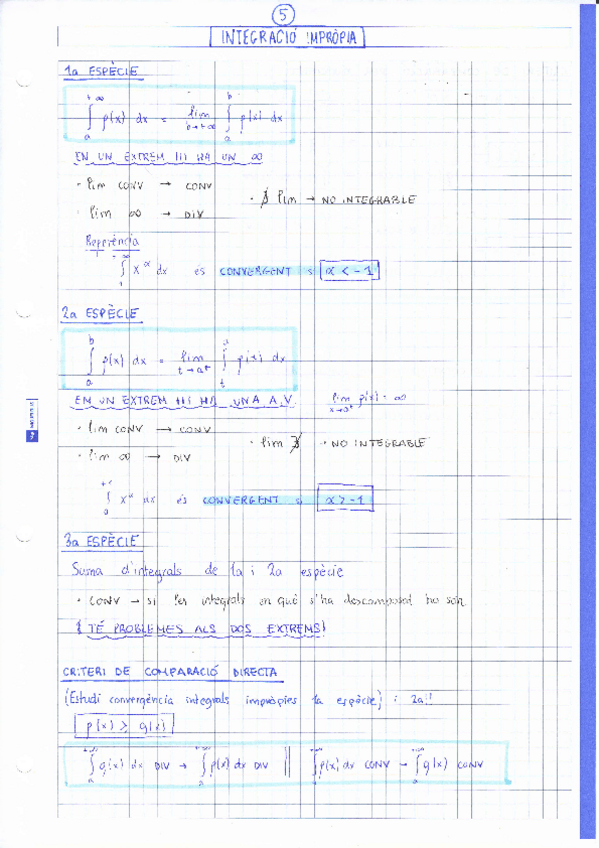 5
INTEGRACIÓ IMPRÒPIA
1a ESPÈCIE
∫ₐ^{+∞} f(x) dx = lim_{b→+∞} ∫ₐ^b f(x) dx
EN UN EXTREM HI HA UN ∞
· lim CONV → CONV
· ∄ lim → NO INTEGRABLE
· lim ∞ → DIV
Referència
∫₁^{+∞} x^α dx és CONVERGENT si α < -1
2a ESPÈCIE
∫ₐ^b f(x) dx = lim_{t→a⁺} ∫ₜ f(x) dx
EN UN EXTREM HI HA UNA A.V. lim_{x→a⁺} f(x) = ∞
· lim CONV → CONV
· lim ∄ → NO INTEGRABLE
· lim ∞ → DIV
∫₀ x^α dx és CONVERGENT si α > -1
3a ESPÈCIE
Suma d'integrals de 1a i 2a espècie
· CONV → si les integrals en què s'ha descomposat ho són
TÉ PROBLEMES ALS DOS EXTREMS!
CRITERI DE COMPARACIÓ DIRECTA
(Estudi convergència integrals impròpies 1a espècie) i 2a!!
f(x) ≥ g(x)
∫ₐ^{+∞} g(x) dx DIV → ∫ₐ^{+∞} f(x) dx DIV || ∫ₐ^{+∞} f(x) dx CONV → ∫ₐ^{+∞} g(x) CONV